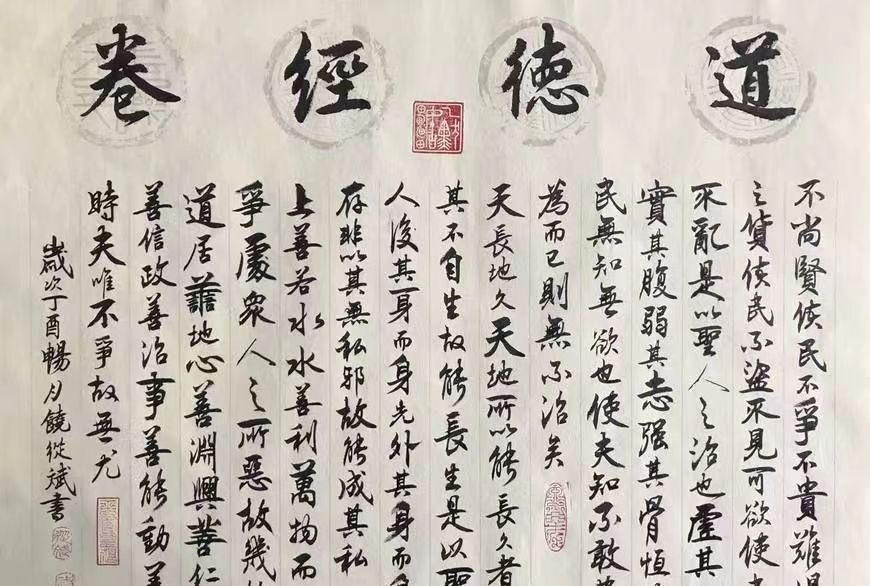 道德經卷
不尚賢使民不爭不貴難
之貨使民不盜不見可欲使
不亂是以聖人之治也虛其
實其腹弱其志强其骨恒
民無知無欲也使夫知不敢
為而已則無不治矣
天長地久天地所以能長久者
其不自生故能長生是以聖
人後其身而身先外其身而身
存非以其無私邪故能成其私
上善若水水善利萬物而
爭處衆人之所惡故幾
道居善地心善淵與善仁
善信政善治事善能動善
時夫唯不爭故無尤
歲次丁酉暢月饒從斌書